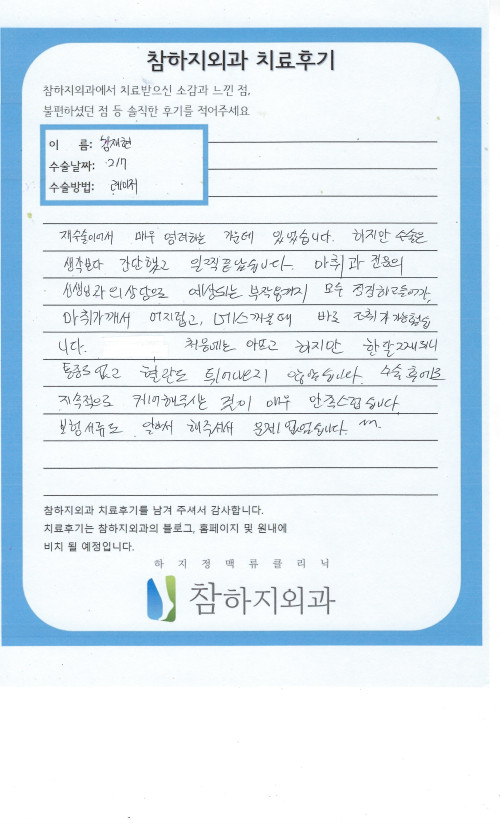 참하지외과 치료후기
참하지외과에서 치료받으신 소감과 느낀 점,
불편하셨던 점 등 솔직한 후기를 적어주세요
이 름:
수술날짜: 2/7
수술방법: 레이저
재수술이어서 매우 염려하는 가운데 있었습니다. 하지만 수술은
생각보다 간단했고 일찍 끝났습니다. 마취과 전문의
선생님과의 상담으로 예상되는 부작용까지 모두 점검하고 들어가,
마취가 깨서 어지럽고, 매스꺼울 때 바로 조취가 가능했습
니다. 처음에는 아프고 하지만 한달 되니
통증도 없고 혈관도 튀어나오지 않았습니다. 수술 후에도
지속적으로 케어해주시는 것이 매우 만족스럽습니다
보험서류도 알아서 해주셔서 문제 없었습니다.
참하지외과 치료후기를 남겨 주셔서 감사합니다.
치료후기는 참하지외과의 블로그, 홈페이지 및 원내에
비치 될 예정입니다.
하지정맥류클리닉
참하지외과